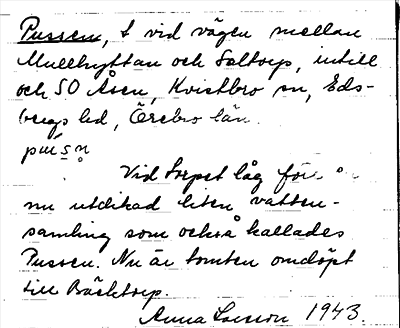 Pussen, t vid vägen mellan
Mullhyttan och Saltorp, intill
och SO Åsen, Kvistbro sn, Eds-
bergs hd, Örebro län.
pɯ́sn̥
Vid torpet låg för
nu utdikad liten vatten-
samling som också kallades
Pussen. Nu är tomten omdöpt
till Bäcktorp.
Anna Larsson 1943.